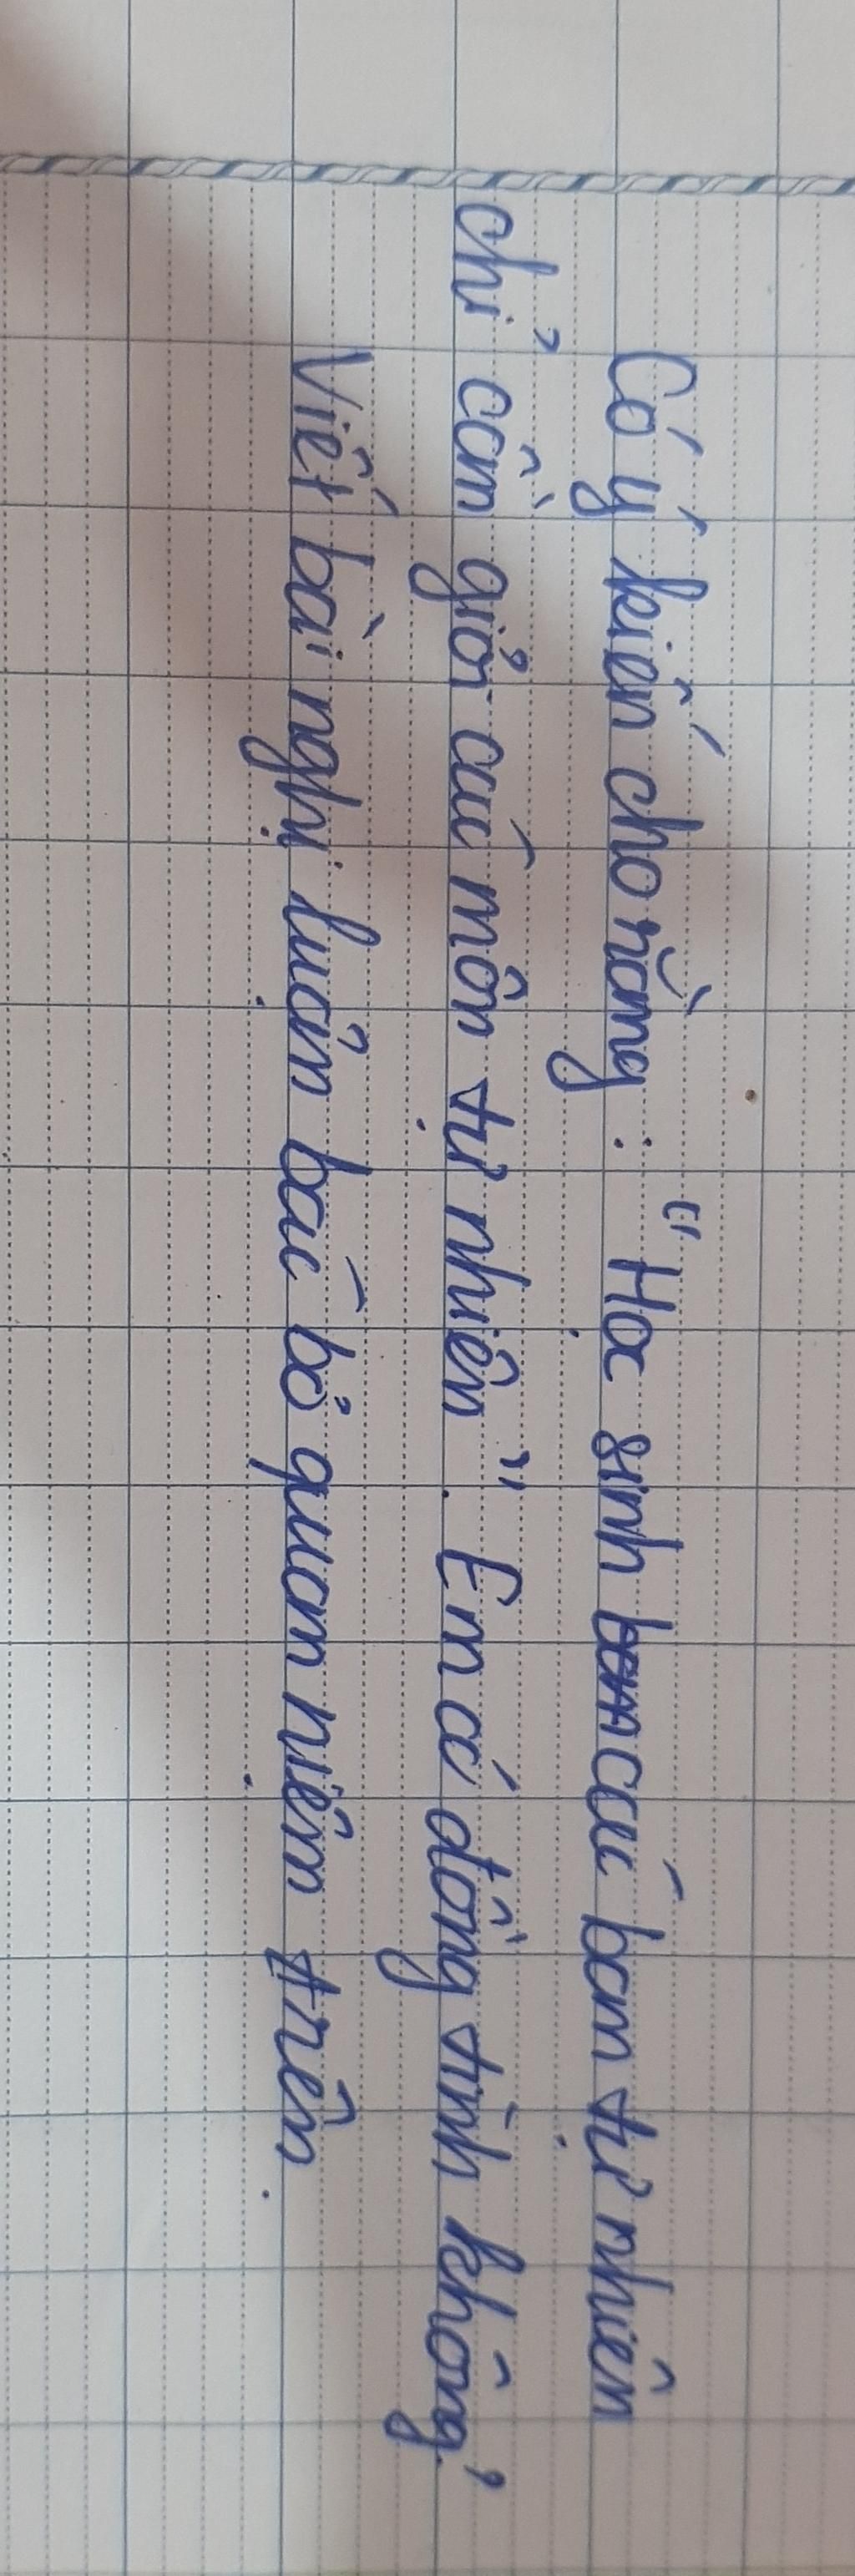 Có ý kiến cho rằng: "Học sinh các ban tự nhiên
chỉ cần giỏi các môn tự nhiên". Em có đồng tình không?
Viết bài nghị luận bác bỏ quan niệm trên.